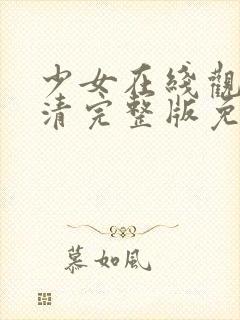 少女在綫觀
清完整版免
慕如風